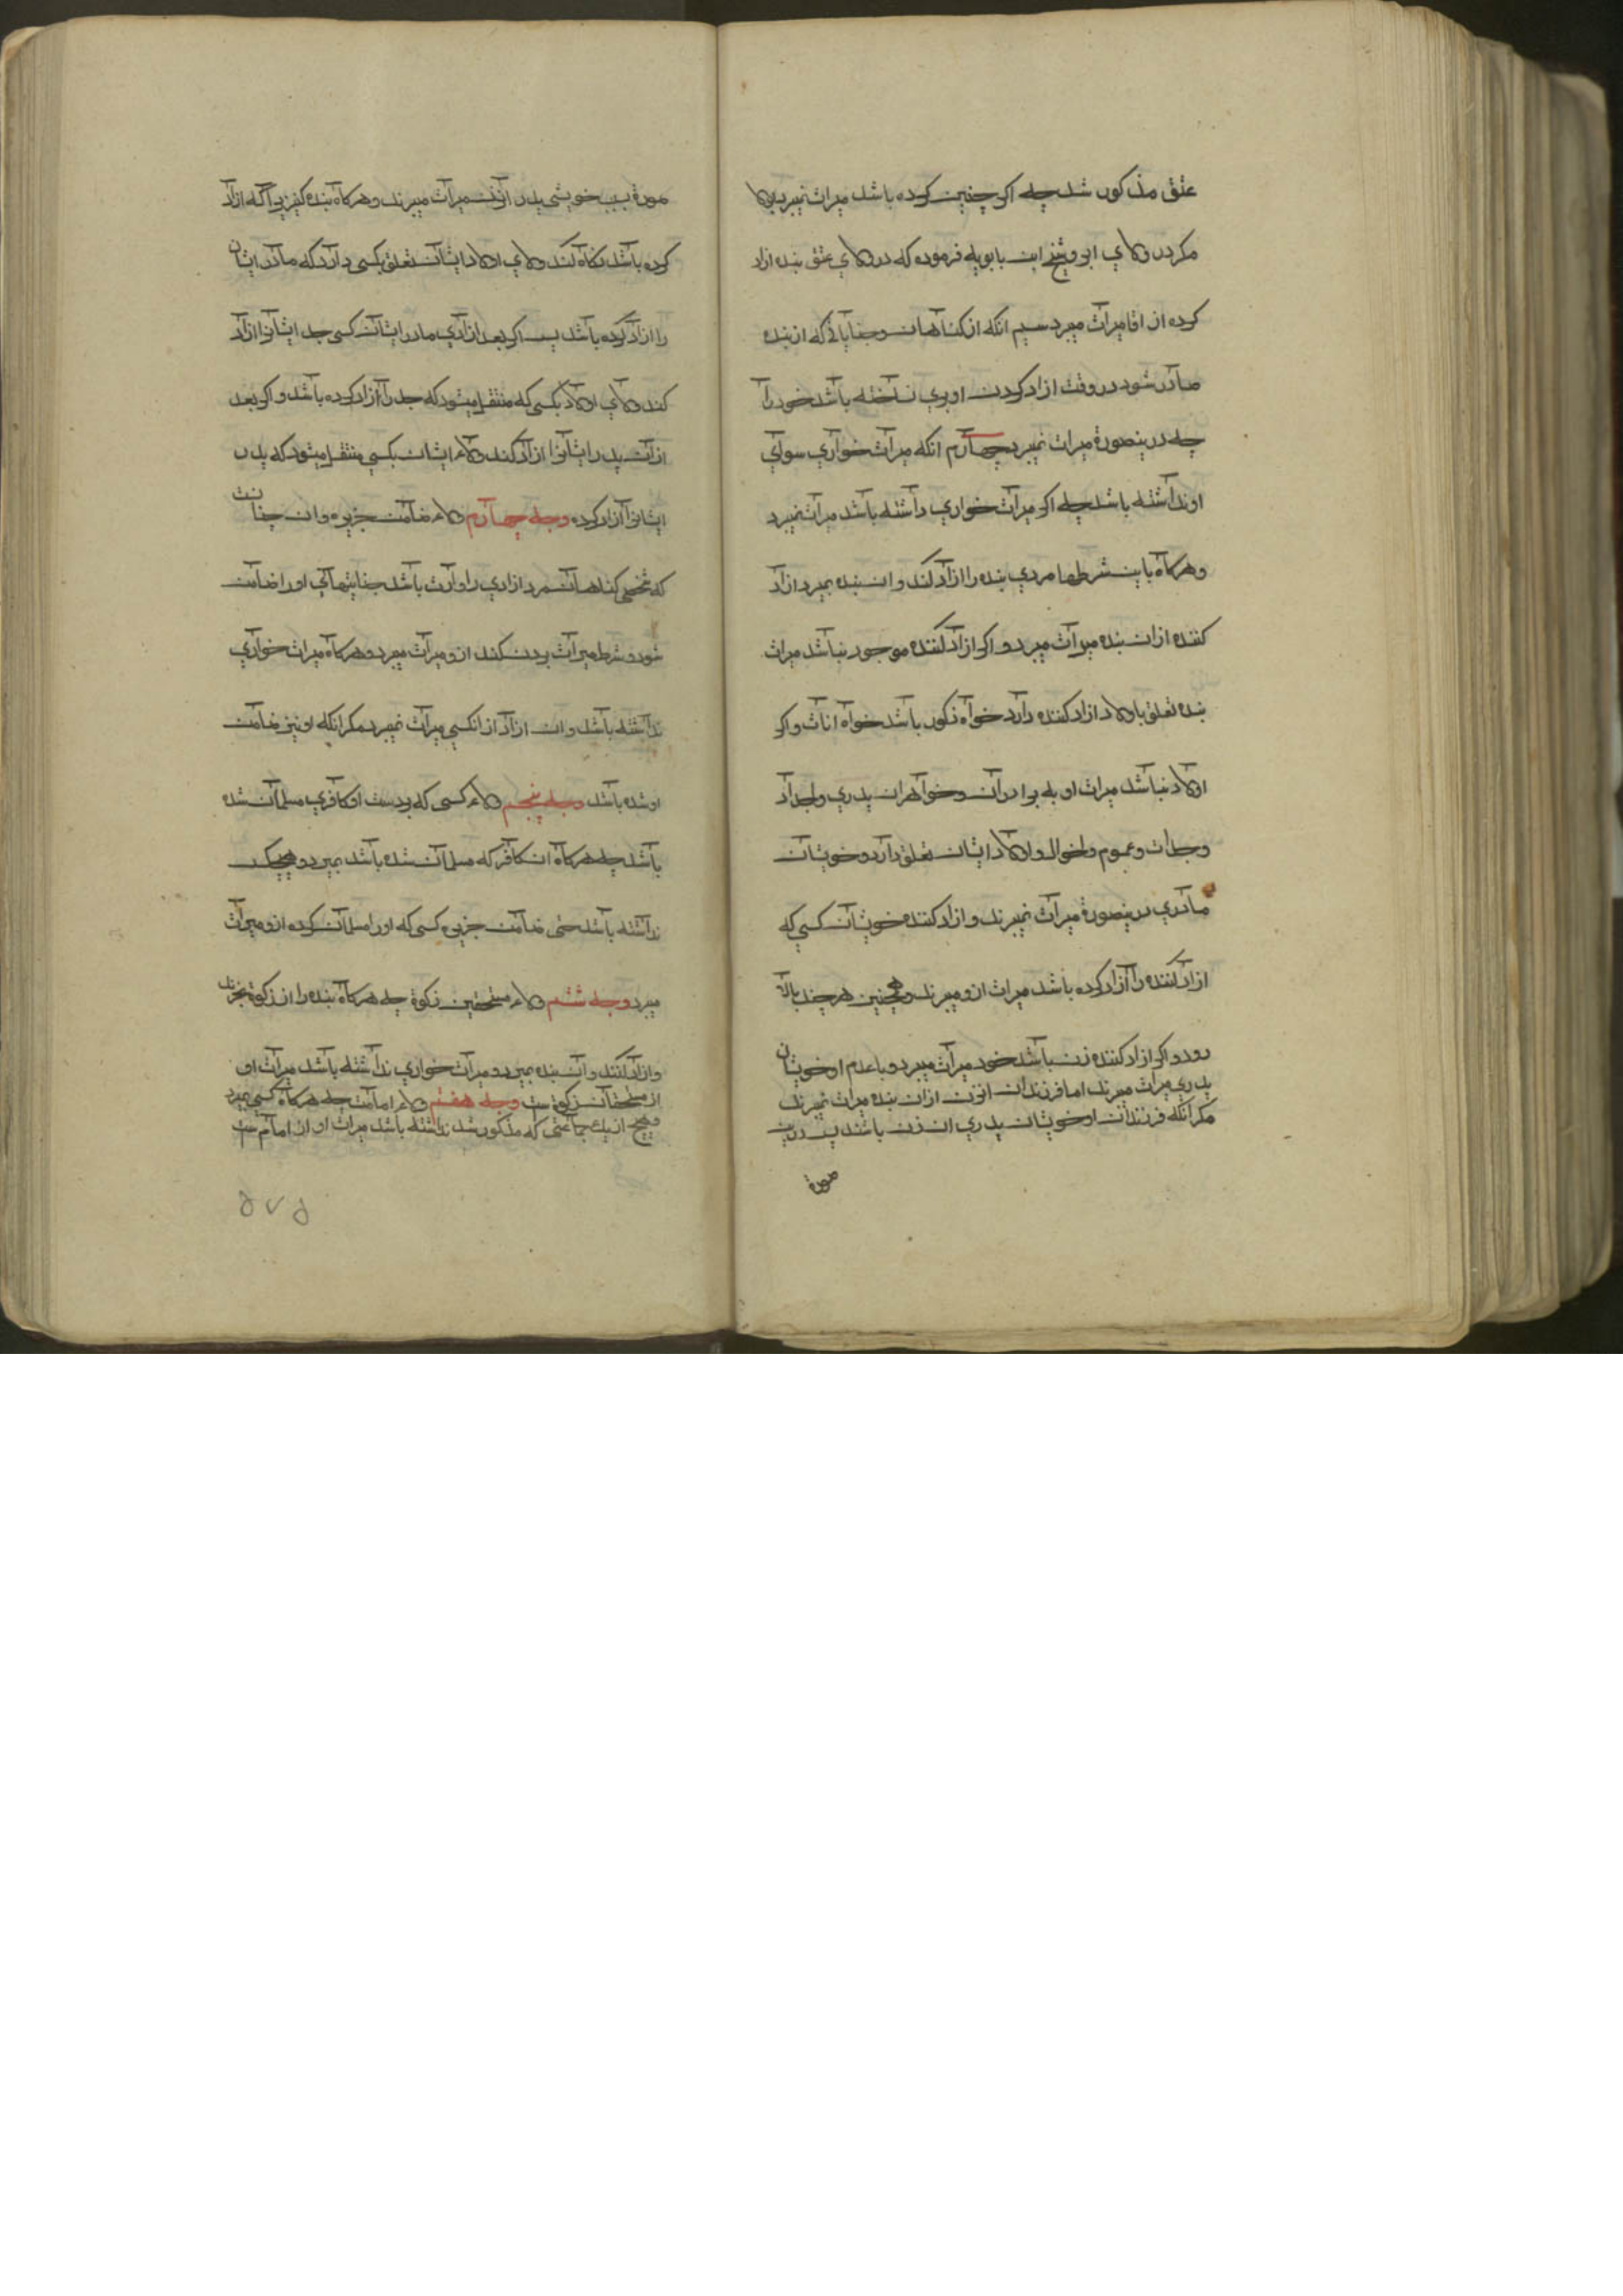 عتق مذکور شد چه اکر چنین کرده باشد میراث نمیبرد بولا
مکر در ولای ابن و شیخ ابن بابویه فرموده که در ولای عتق بنده ازاد
کرده از اقا میراث میبرد سیم انکه از کناهان و جنایاتی که از بنده
صادر شود در وقت ازاد کردن او بری ساخته باشد خود را
چه درینصورة میراث نمیبرد چهارم انکه میراث خواری سوای
او نداشته باشد چه اکر میراث خواری داشته باشد میراث نمیبرد
و هرکاه باین شرطها مردی بنده را ازاد کند و ان بنده بمیرد ازاد
کننده ازان بنده میراث میبرد و اکر ازاد کننده موجود نباشد میراث
بنده تعلق باولاد ازاد کننده دارد خواه ذکور باشد خواه اناث و اکر
اولاد نباشد میراث او به برادران و خواهران پدری و اجداد
و جدات و عموم و اخوال و اولاد ایشان تعلق دارد و خویشان
مادری درینصورة میراث نمیبرند و ازاد کننده خویشان کسی که
ازاد کننده را ازاد کرده باشد میراث ازو میبرند و همچنین هرچند بالا
رود و اکر ازاد کننده زن باشد خود میراث میبرد و با عدم او خویشان
پدری میراث میبرند اما فرزندان انزن ازان بنده میراث نمیبرند
مکر انکه فرزندان او خویشان پدری ان زن باشند پس درین
صورة
صورة بسبب خویشی پدر انزن میراث میبرند و هرکاه بنده کنیزیرا که ازاد
کرده باشد نکاه کند ولای اولاد ایشان تعلق بکسی دارد که مادر ایشان
را ازاد کرده باشد پس اکر بعد از ازادی مادر ایشان کسی جد ایشانرا ازاد
کند ولای اولاد بکسی که منتقل میشود که جد را ازاد کرده باشد و اکر بعد
ازان پدر ایشانرا ازاد کند ولاء ایشان بکسی منتقل میشود که پدر
ایشانرا ازاد کرده وجه چهارم ولاء ضامن جزیره و ان چنانست
که شخصی کناهان مرد ازادی را وارث باشد جنایتهای او را ضامن
شود و شرط میراث بردن کند ازو میراث میبرد و هرکاه میراث خواری
نداشته باشد و ان ازاد از انکسی میراث نمیبرد مکر انکه او نیز ضامن
او شده باشد وجه پنجم ولاء کسی که بر دست او کافری مسلمان شده
باشد چه هرکاه ان کافر که مسلمان شده باشد بمیرد و هیچکس
نداشته باشد حتی ضامن جزیره کسی که او را مسلمان کرده ازو میراث
میبرد وجه ششم ولاء مستحقین زکوة چه هرکاه بنده را از زکوة بخرند
و ازاد کنند و ان بنده بمیرد و میراث خواری نداشته باشد میراث او
از مستحقان زکوة ست وجه هفتم ولاء امامت چه هرکاه کسی بمیرد
و هیچ از یك جماعتی که مذکور شد نداشته باشد میراث او از امام ست
۵۷۵